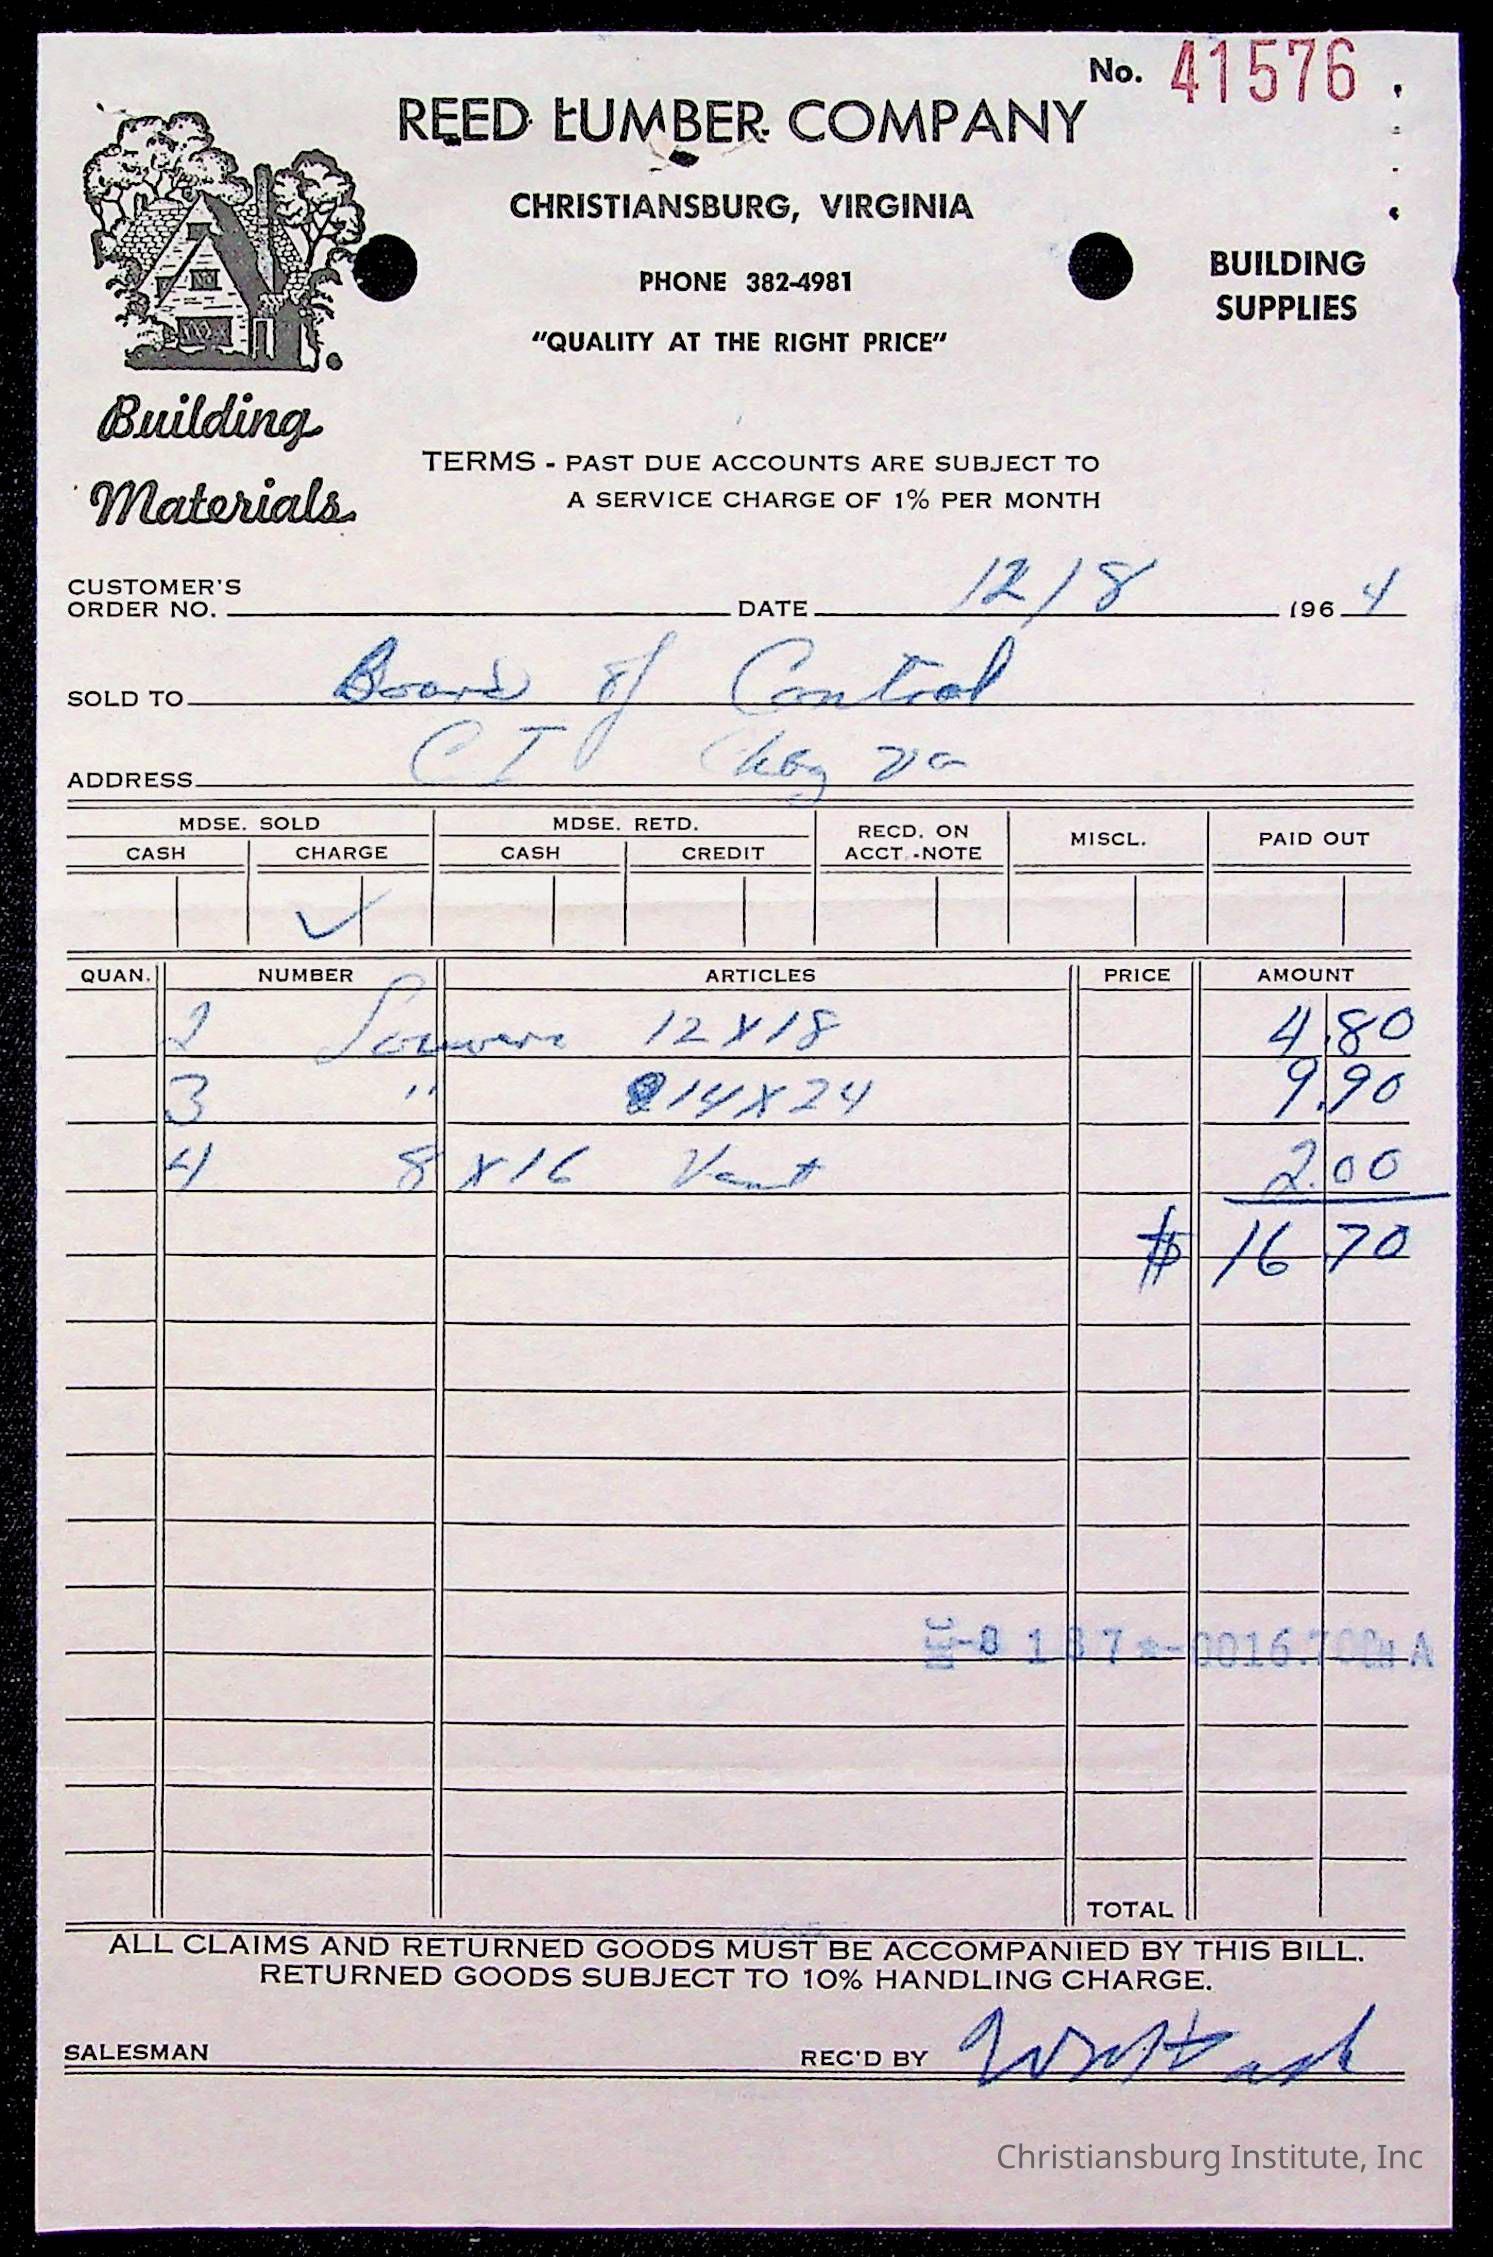 No. 41576
REED LUMBER COMPANY
CHRISTIANSBURG, VIRGINIA
PHONE 382-4981
BUILDING
SUPPLIES
"QUALITY AT THE RIGHT PRICE"
Building
Materials
TERMS - PAST DUE ACCOUNTS ARE SUBJECT TO
A SERVICE CHARGE OF 1% PER MONTH
CUSTOMER'S
ORDER NO. DATE 12/8 1964
SOLD TO Board of Control
ADDRESS CI Chbg Va
MDSE. SOLD MDSE. RETD. RECD. ON ACCT.-NOTE MISCL. PAID OUT
CASH CHARGE CASH CREDIT
✓
QUAN. NUMBER ARTICLES PRICE AMOUNT
2 Louvers 12X18 4.80
3 " 14X24 9.90
4 8X16 Vent 2.00
$ 16 70
TOTAL
ALL CLAIMS AND RETURNED GOODS MUST BE ACCOMPANIED BY THIS BILL.
RETURNED GOODS SUBJECT TO 10% HANDLING CHARGE.
SALESMAN REC'D BY
Christiansburg Institute, Inc